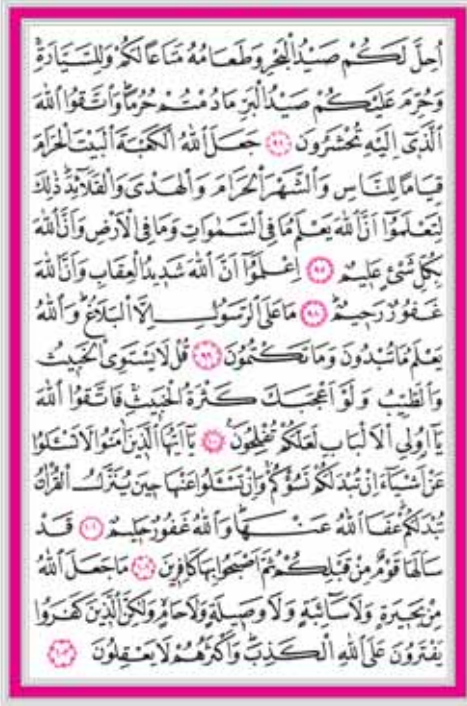 اُحِلَّ لَكُمْ صَيْدُ الْبَحْرِ وَطَعَامُهُ مَتَاعًا لَكُمْ وَلِلسَّيَّارَةِۚ
وَحُرِّمَ عَلَيْكُمْ صَيْدُ الْبَرِّ مَا دُمْتُمْ حُرُمًاۜ وَاتَّقُوا اللّٰهَ
الَّذ۪ٓي اِلَيْهِ تُحْشَرُونَ ﴿٩٦﴾ جَعَلَ اللّٰهُ الْكَعْبَةَ الْبَيْتَ الْحَرَامَ
قِيَامًا لِلنَّاسِ وَالشَّهْرَ الْحَرَامَ وَالْهَدْيَ وَالْقَلَٓائِدَۜ ذٰلِكَ
لِتَعْلَمُٓوا اَنَّ اللّٰهَ يَعْلَمُ مَا فِي السَّمٰوَاتِ وَمَا فِي الْاَرْضِ وَاَنَّ اللّٰهَ
بِكُلِّ شَيْءٍ عَل۪يمٌ ﴿٩٧﴾ اِعْلَمُٓوا اَنَّ اللّٰهَ شَد۪يدُ الْعِقَابِ وَاَنَّ اللّٰهَ
غَفُورٌ رَح۪يمٌۜ ﴿٩٨﴾ مَا عَلَى الرَّسُولِ اِلَّا الْبَلَاغُۜ وَاللّٰهُ
يَعْلَمُ مَا تُبْدُونَ وَمَا تَكْتُمُونَ ﴿٩٩﴾ قُلْ لَا يَسْتَوِي الْخَب۪يثُ
وَالطَّيِّبُ وَلَوْ اَعْجَبَكَ كَثْرَةُ الْخَب۪يثِۚ فَاتَّقُوا اللّٰهَ
يَٓا اُو۬لِي الْاَلْبَابِ لَعَلَّكُمْ تُفْلِحُونَ۟ ﴿١٠٠﴾ يَٓا اَيُّهَا الَّذ۪ينَ اٰمَنُوا لَا تَسْـَٔلُوا
عَنْ اَشْيَٓاءَ اِنْ تُبْدَ لَكُمْ تَسُؤْكُمْۚ وَاِنْ تَسْـَٔلُوا عَنْهَا ح۪ينَ يُنَزَّلُ الْقُرْاٰنُ
تُبْدَ لَكُمْۜ عَفَا اللّٰهُ عَنْهَاۜ وَاللّٰهُ غَفُورٌ حَل۪يمٌ ﴿١٠١﴾ قَدْ
سَاَلَهَا قَوْمٌ مِنْ قَبْلِكُمْ ثُمَّ اَصْبَحُوا بِهَا كَافِر۪ينَ ﴿١٠٢﴾ مَا جَعَلَ اللّٰهُ
مِنْ بَح۪يرَةٍ وَلَا سَٓائِبَةٍ وَلَا وَص۪يلَةٍ وَلَا حَامٍۙ وَلٰكِنَّ الَّذ۪ينَ كَفَرُوا
يَفْتَرُونَ عَلَى اللّٰهِ الْكَذِبَۜ وَاَكْثَرُهُمْ لَا يَعْقِلُونَ ﴿١٠٣﴾